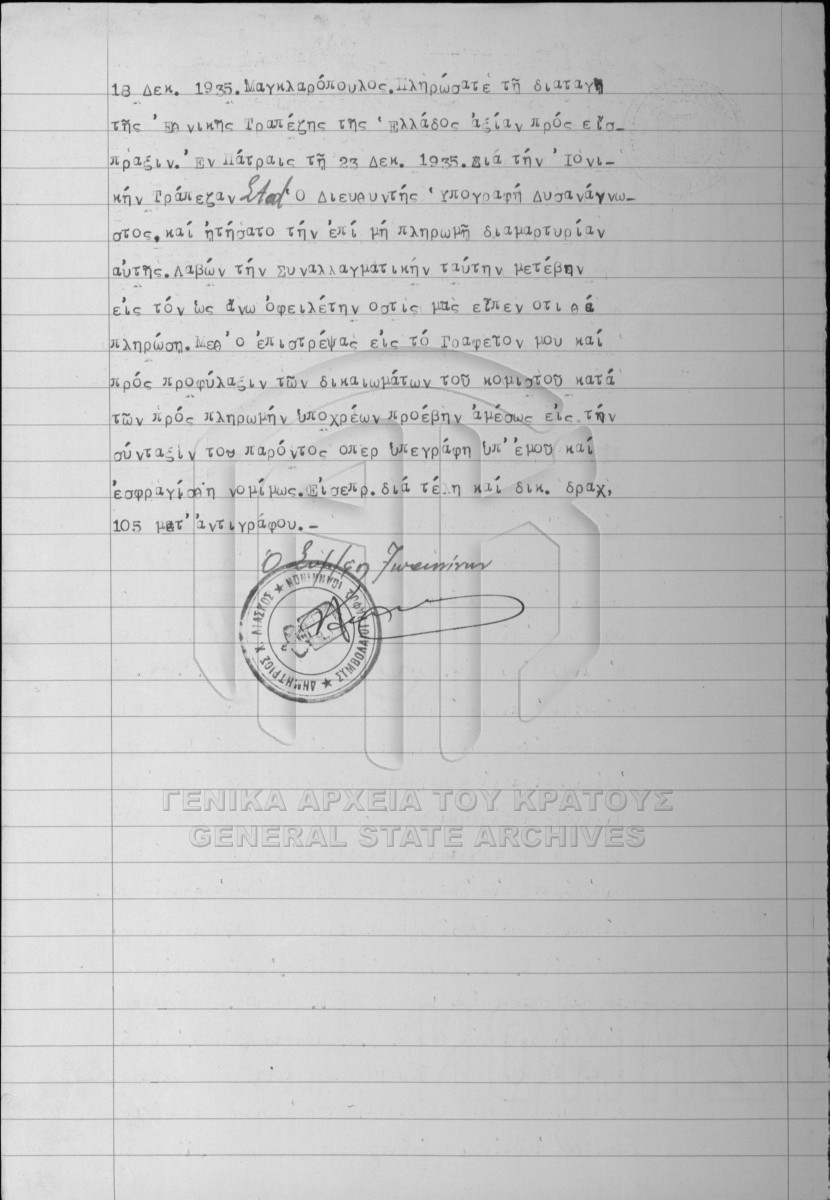 18 Δεκ. 1935. Μαγκλαρόπουλος. Πληρώσατε τῇ διαταγῇ
τῆς Ἐθνικῆς Τραπέζης τῆς Ἑλλάδος ἀξίαν πρός εἴσ-
πραξιν. Ἐν Πάτραις τῇ 23 Δεκ. 1935. Διά τήν Ἰονι-
κήν Τράπεζαν Ὁ Διευθυντής Ὑπογραφή Δυσανάγνω-
στος, καί ᾐτήσατο τήν ἐπί μή πληρωμῇ διαμαρτυρίαν
αὐτῆς. Λαβών τήν Συναλλαγματικήν ταύτην μετέβην
εἰς τόν ὡς ἄνω ὀφειλέτην οστις μας εἶπεν οτι θά
πληρώση. Μεθ' ὁ ἐπιστρέψας εἰς τό Γραφεῖον μου καί
πρός προφύλαξιν τῶν δικαιωμάτων τοῦ κομιστοῦ κατά
τῶν πρός πληρωμήν ὑποχρέων προέβην ἀμέσως εἰς τήν
σύνταξίν του παρόντος οπερ ὑπεγράφη ὑπ' ἐμοῦ καί
ἐσφραγίσθη νομίμως. Εἰσεπρ. διά τέλη καί δικ. δραχ,
105 μετ' ἀντιγράφου.-
ΣΥΜΒΟΛΑΙΟΓΡΑΦΟΣ ΙΩΑΝΝΙΝΩΝ ★ ΔΗΜΗΤΡΙΟΣ Χ. ΛΙΑΣΚΟΣ ★
ΓΕΝΙΚΑ ΑΡΧΕΙΑ ΤΟΥ ΚΡΑΤΟΥΣ
GENERAL STATE ARCHIVES